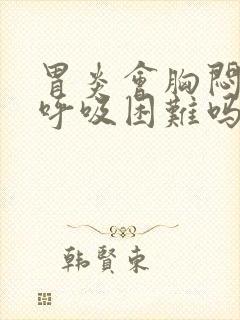 胃炎會胸悶
呼吸困難嗎
韩賢東